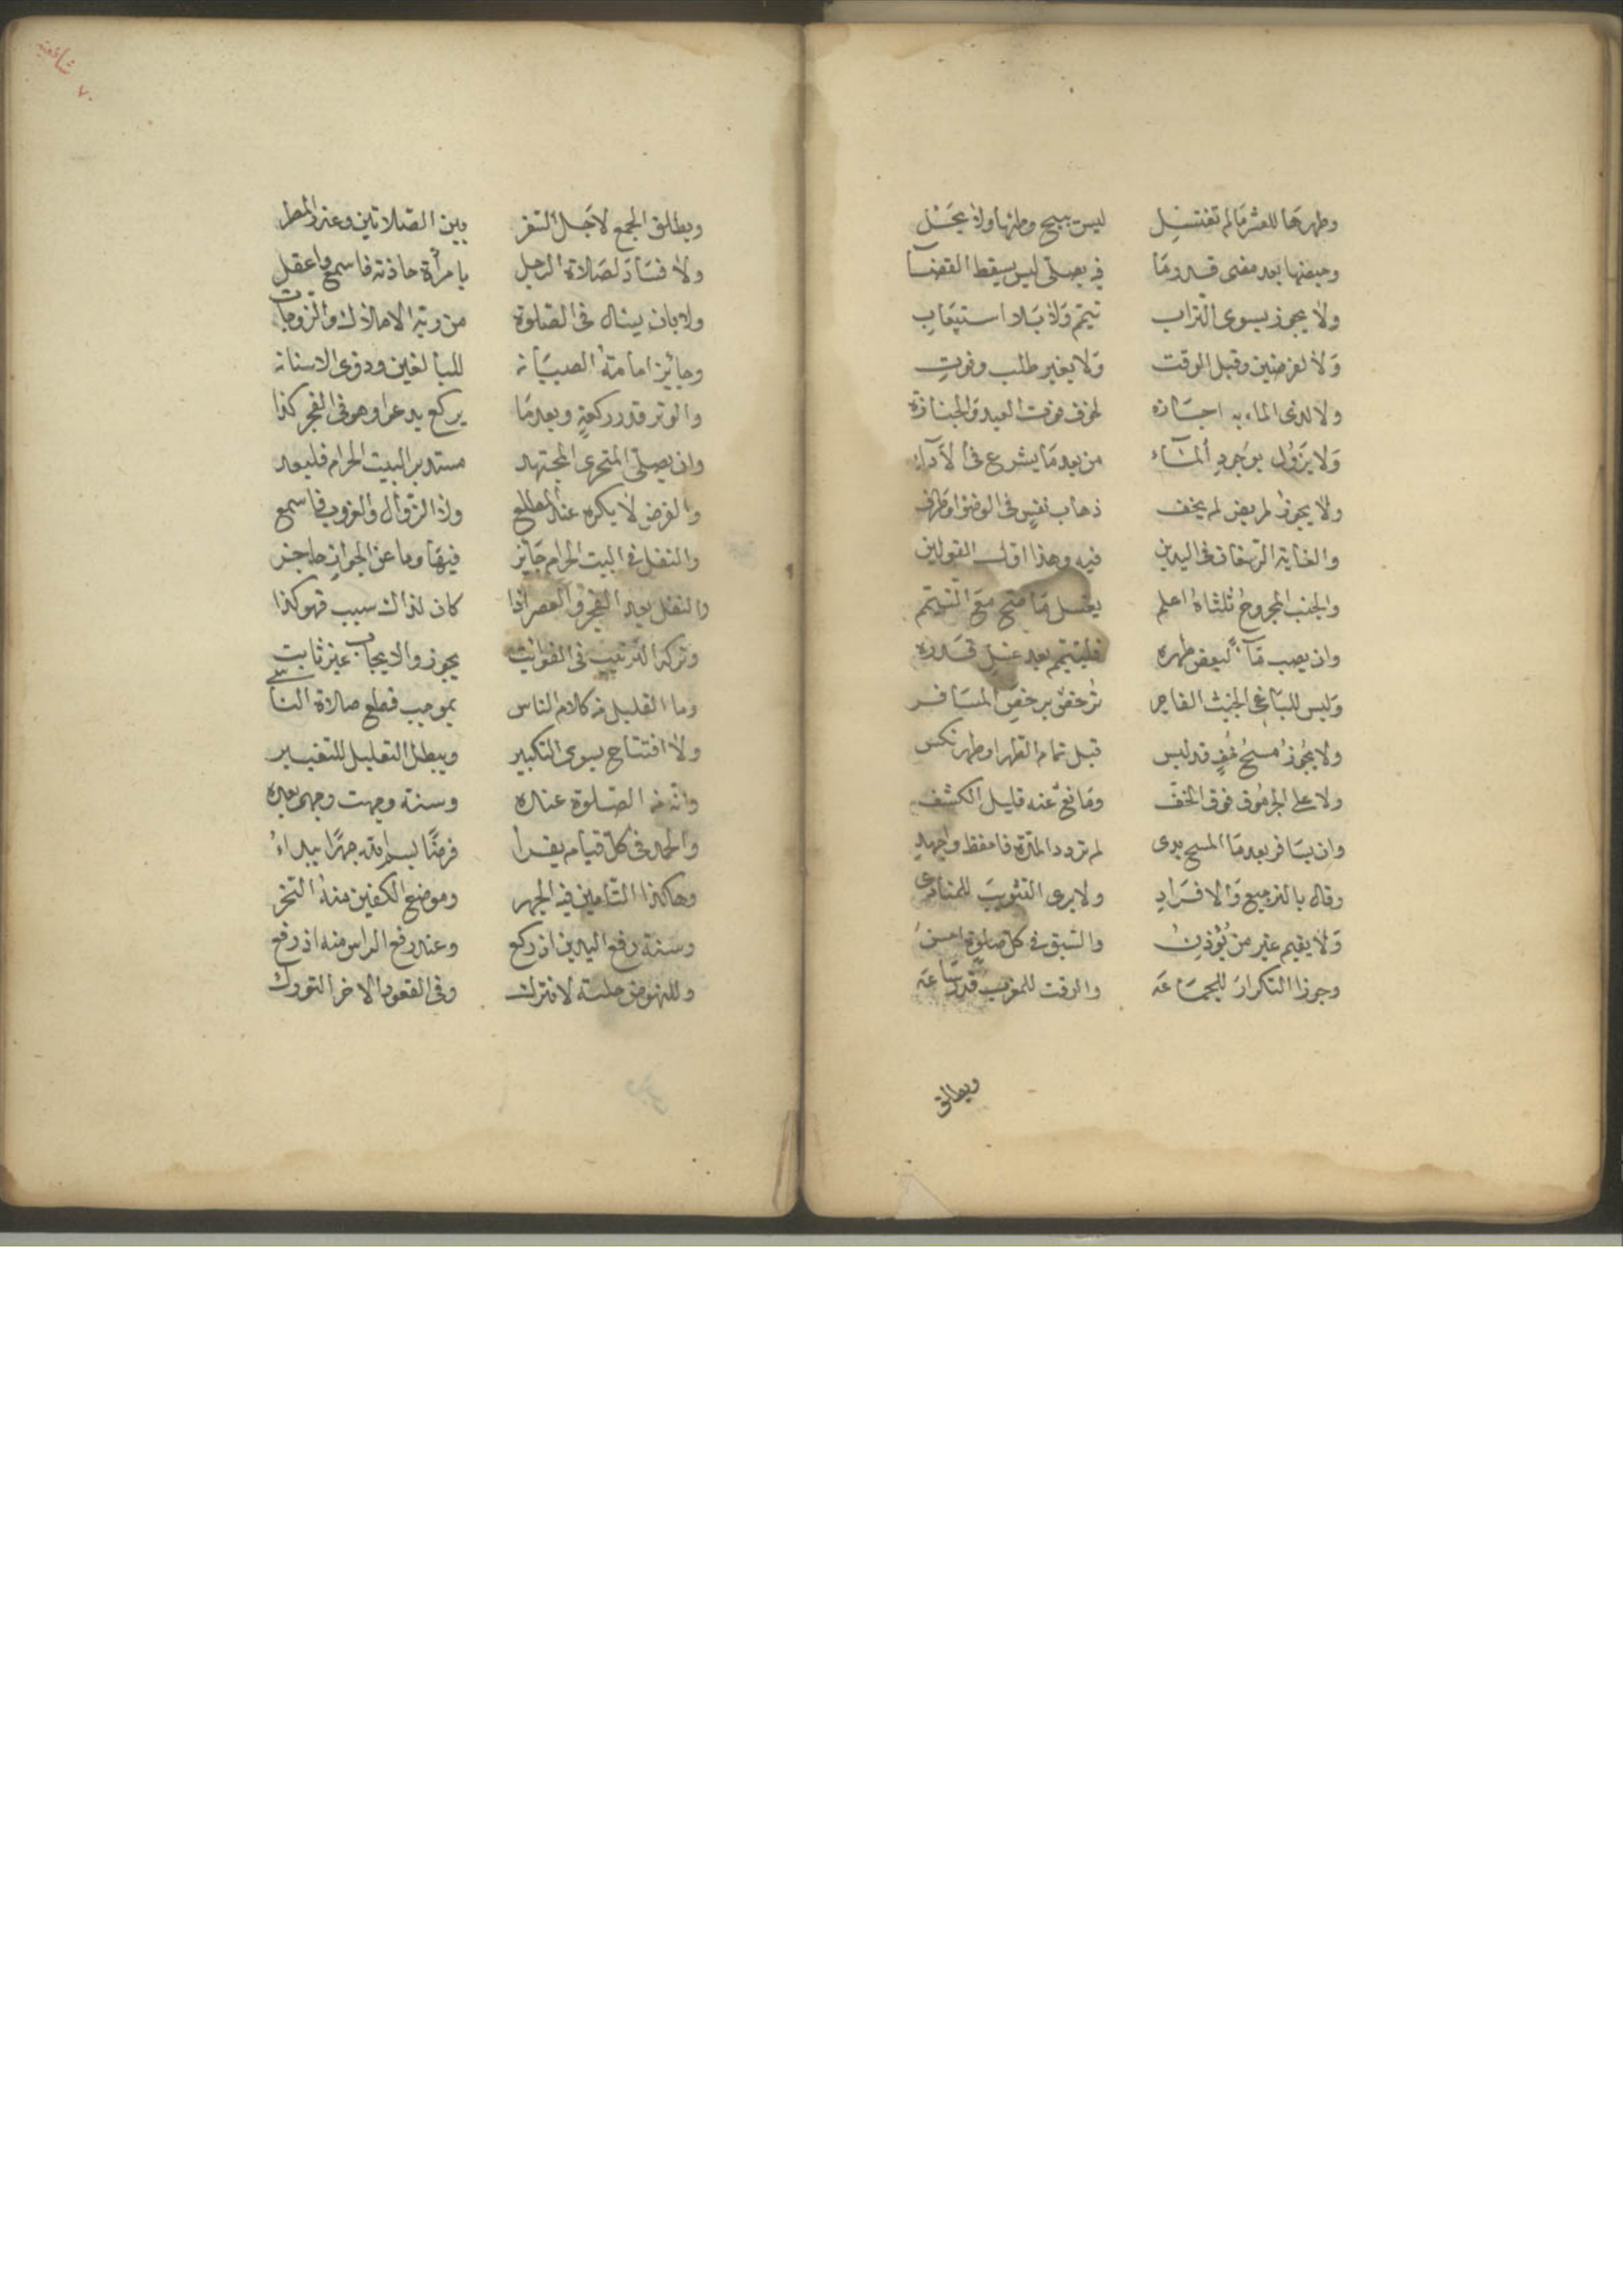 وطهرها للعشر ما لم تغتسل ليس يبيح وطئها وإن يحل
وحيضها بعد مضى قدر ما فيه يصلى ليس يسقط القضا
ولا يجوز بسوى التراب تيمم ولا بلا استيعاب
ولا لفرضين وقبل الوقت ولا بغير طلب وفوت
ولا لدى الماء به اجتازه لخوف فوت العيد والجنازه
ولا يزول بوجود الماء من بعد ما يشرع فى الاداء
ولا يجوز لمريض لم يخف ذهاب نفس فى الوضوء او طرف
والغاية الرسغان فى اليدين فيه وهذا اول القولين
والجنب المجروح ثلثاه اعلم يغسل ما صح مع التيمم
وان يصب ماء لبعض طهره فليتيمم بعد غسل قدره
وليس للباغى الخبيث الفاجر ترخص برخص المسافر
ولا يجوز مسح خف قد لبس قبل تمام الطهر او طهر نكس
ولا على الجرموق فوق الخف ومانع عنه قليل الكشف
وان يسافر بعد ما المسح بدى لم تزدد المدة فاحفظ واجهد
وقال بالترجيع والافراد ولا يرى التثويب للمنادى
ولا يقيم غير من يؤذن والسبق فى كل صلوة احسن
وجوزا التكرار للجماعه والوقت للمغرب قدر ساعه
ويطلق
شافعى
٧٠
ويطلق الجمع لاجل السفر بين الصلاتين وعند المطر
ولا فساد لصلاة الرجل بامرأة حاذته فاسمع واعقل
من رتبة الاملاك والزوجات
وجائز امامة الصبيان للبالغين وذوى الاسنان
والوتر قدر ركعة وبعدما يركع يدعو وهو فى الفجر كذا
وان يصلى المتحرى المجتهد مستدبر البيت الحرام فليعد
والفرض لا يكره عند المطلع ولا الزوال والغروب فاسمع
والنفل فى البيت الحرام جايز فيها وما عن الجواز حاجز
والنفل بعد الفجر والعصر اذا كان لذاك سبب فهو كذا
وتركه الترتيب فى الفوائت يجوز والايجاب غير ثابت
وما القليل من كلام الناس بموجب قطع صلاة الناسى
ولا افتتاح بسوى التكبير ويبطل التعليل للتغيير
وانه من الصلوة عنده وسنة وجهت وجهى بعده
والحمد فى كل قيام يقرا فرضا ببسم الله جهرا يبداء
وهاكذا التامين فيه الجهر وموضع الكفين منه النحر
وسنة رفع اليدين اذ ركع وعند رفع الراس منه اذ رفع
وللنهوض جلسة لا تترك وفى القعود الاخر التورك